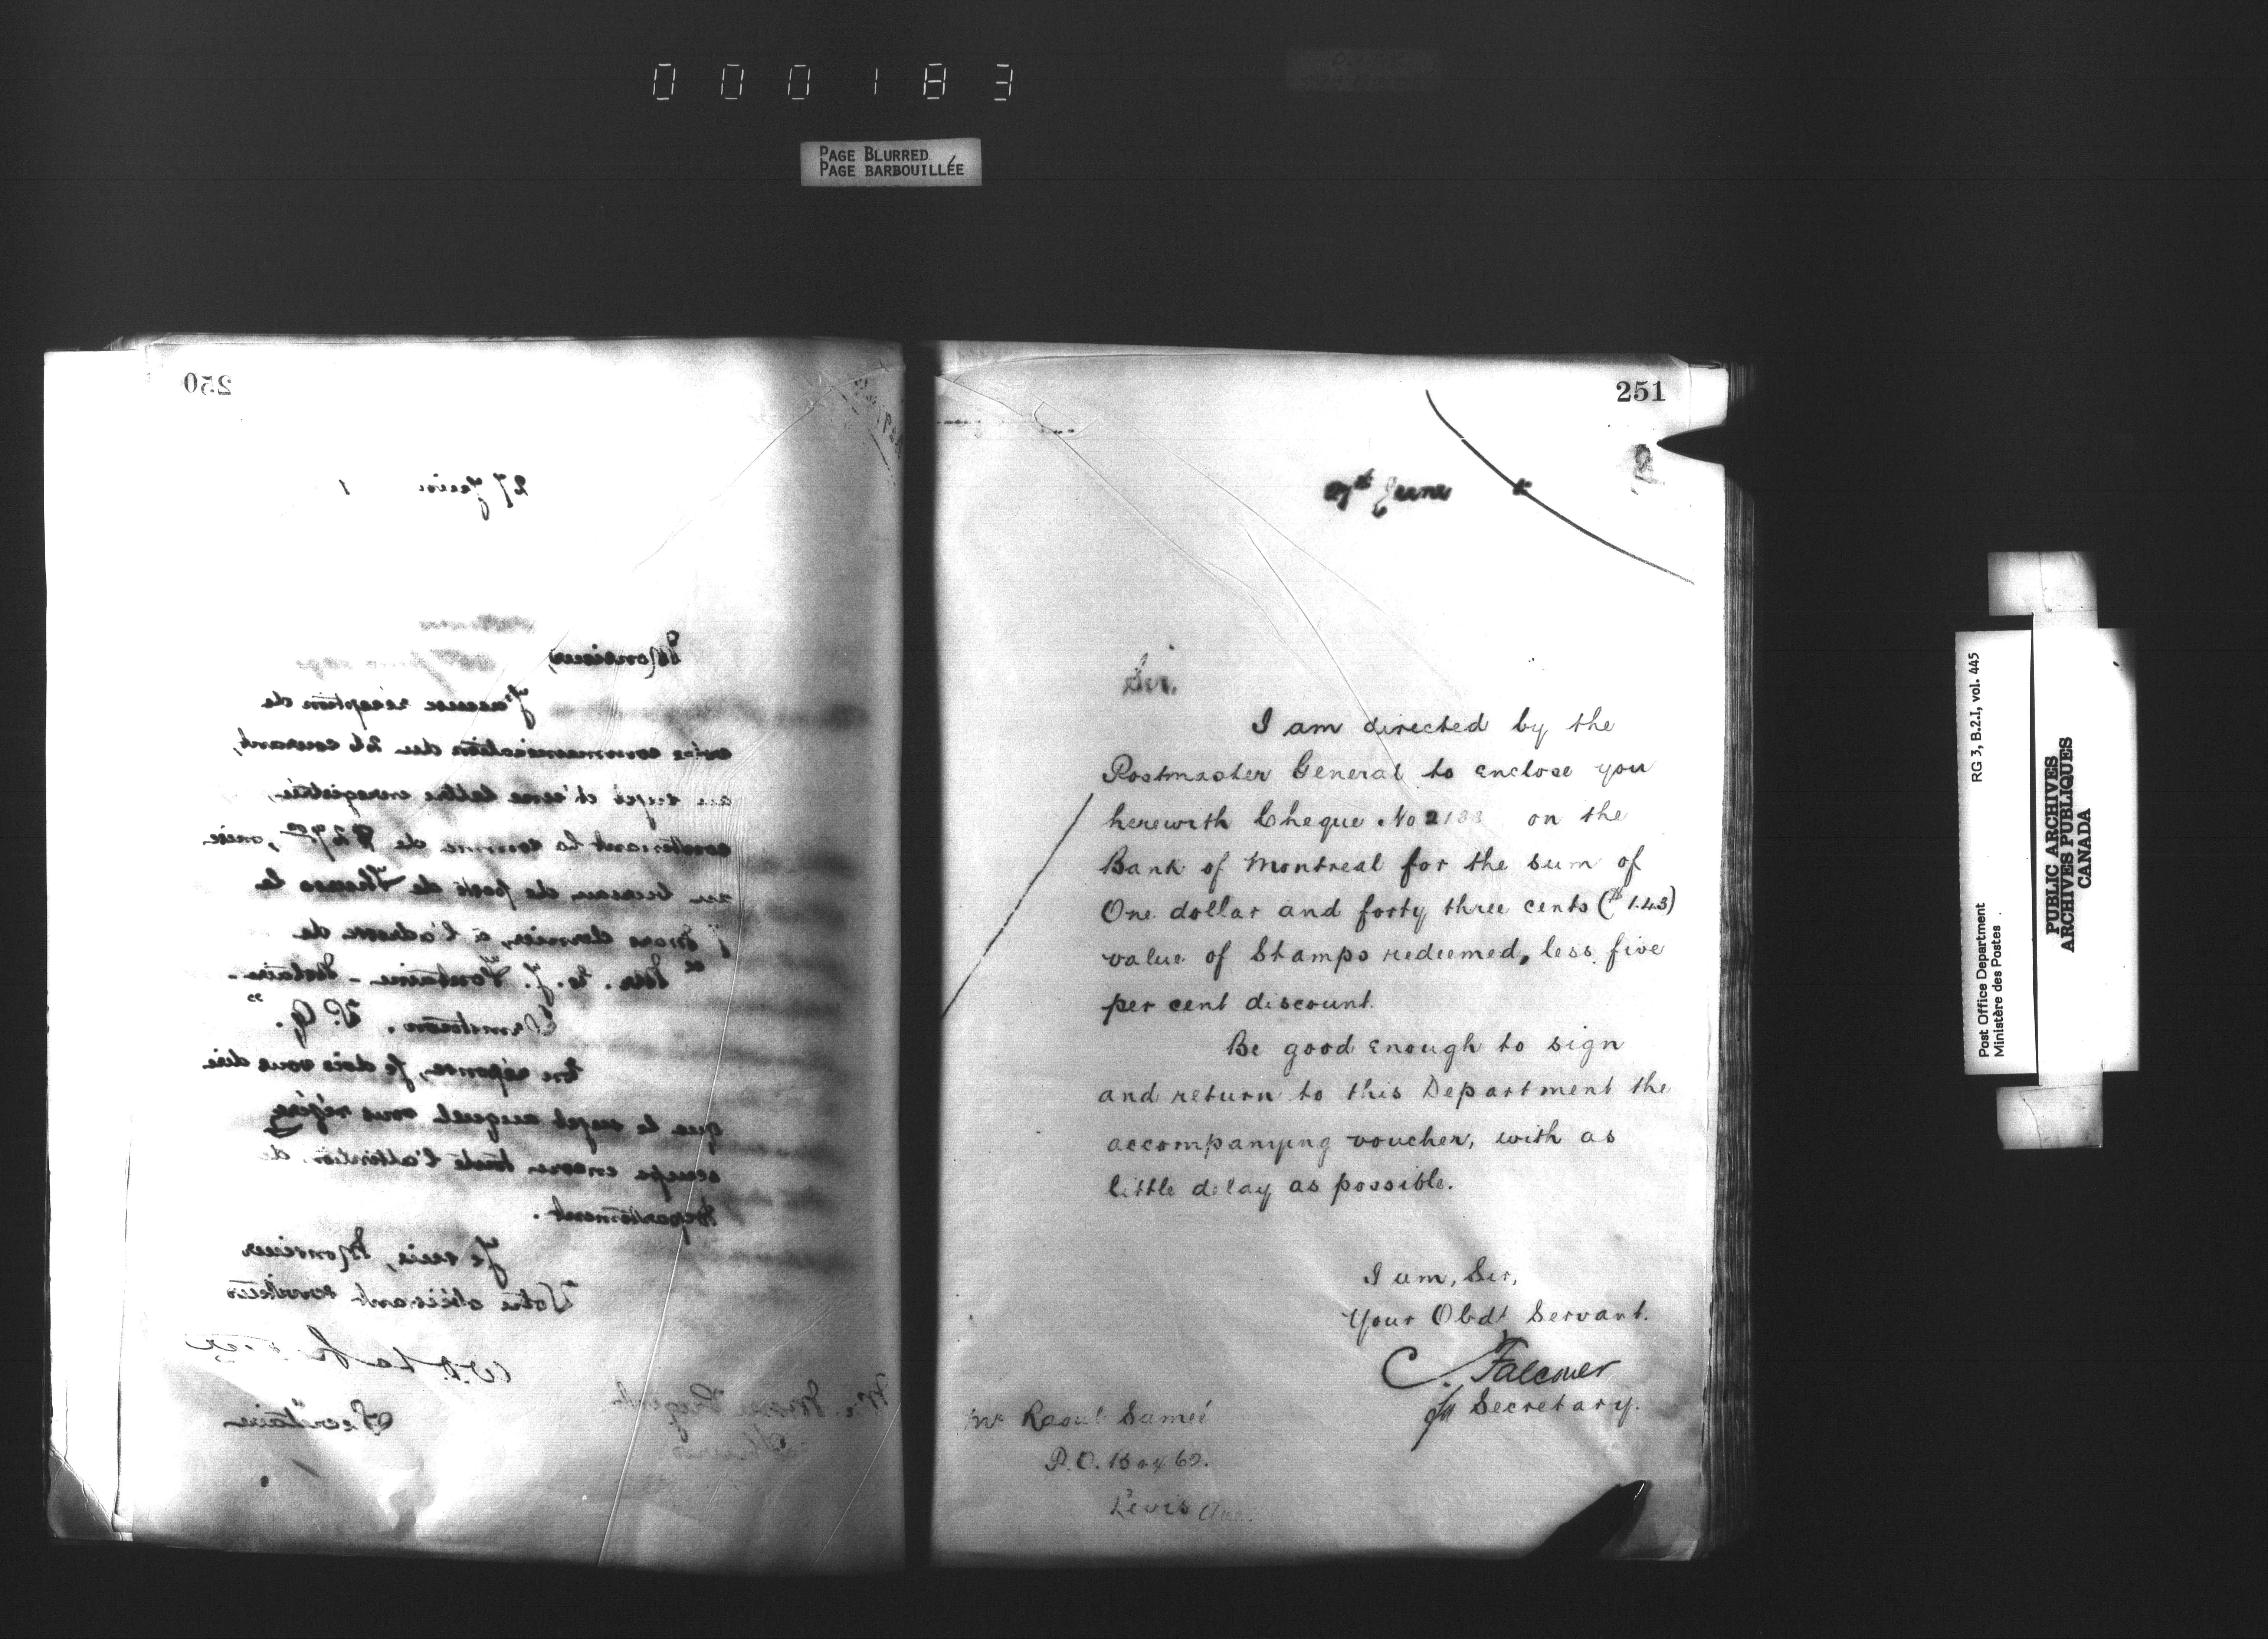 000183
PAGE BLURRED
PAGE BARBOUILLÉE
250
27 Juin 1
Monsieur,
J'accuse réception de
votre communication du 26 courant,
au sujet d'une lettre enregistrée,
contenant la somme de $27.00, mise
au bureau de poste de Thurso le
mars dernier, à l'adresse de
J. Fontaine - Notaire -
P.Q."
En réponse, je dois vous dire
que le sujet auquel vous référez
occupe encore toute l'attention de
Département.
Je suis, Monsieur
Votre obéissant serviteur
W.D.
Secrétaire
Thurso
251
27th June
Sir,
I am directed by the
Postmaster General to enclose you
herewith Cheque No 2133 on the
Bank of Montreal for the sum of
One dollar and forty three cents ($1.43)
value of Stamps redeemed, less five
per cent discount.
Be good enough to sign
and return to this Department the
accompanying voucher, with as
little delay as possible.
I am, Sir,
Your Obdt Servant.
C. Falconer
for Secretary.
Mr Raoul Samié
P.O. Box 60.
Levis Que.
Post Office Department
Ministère des Postes
RG 3, B.2.I, vol. 445
PUBLIC ARCHIVES
ARCHIVES PUBLIQUES
CANADA